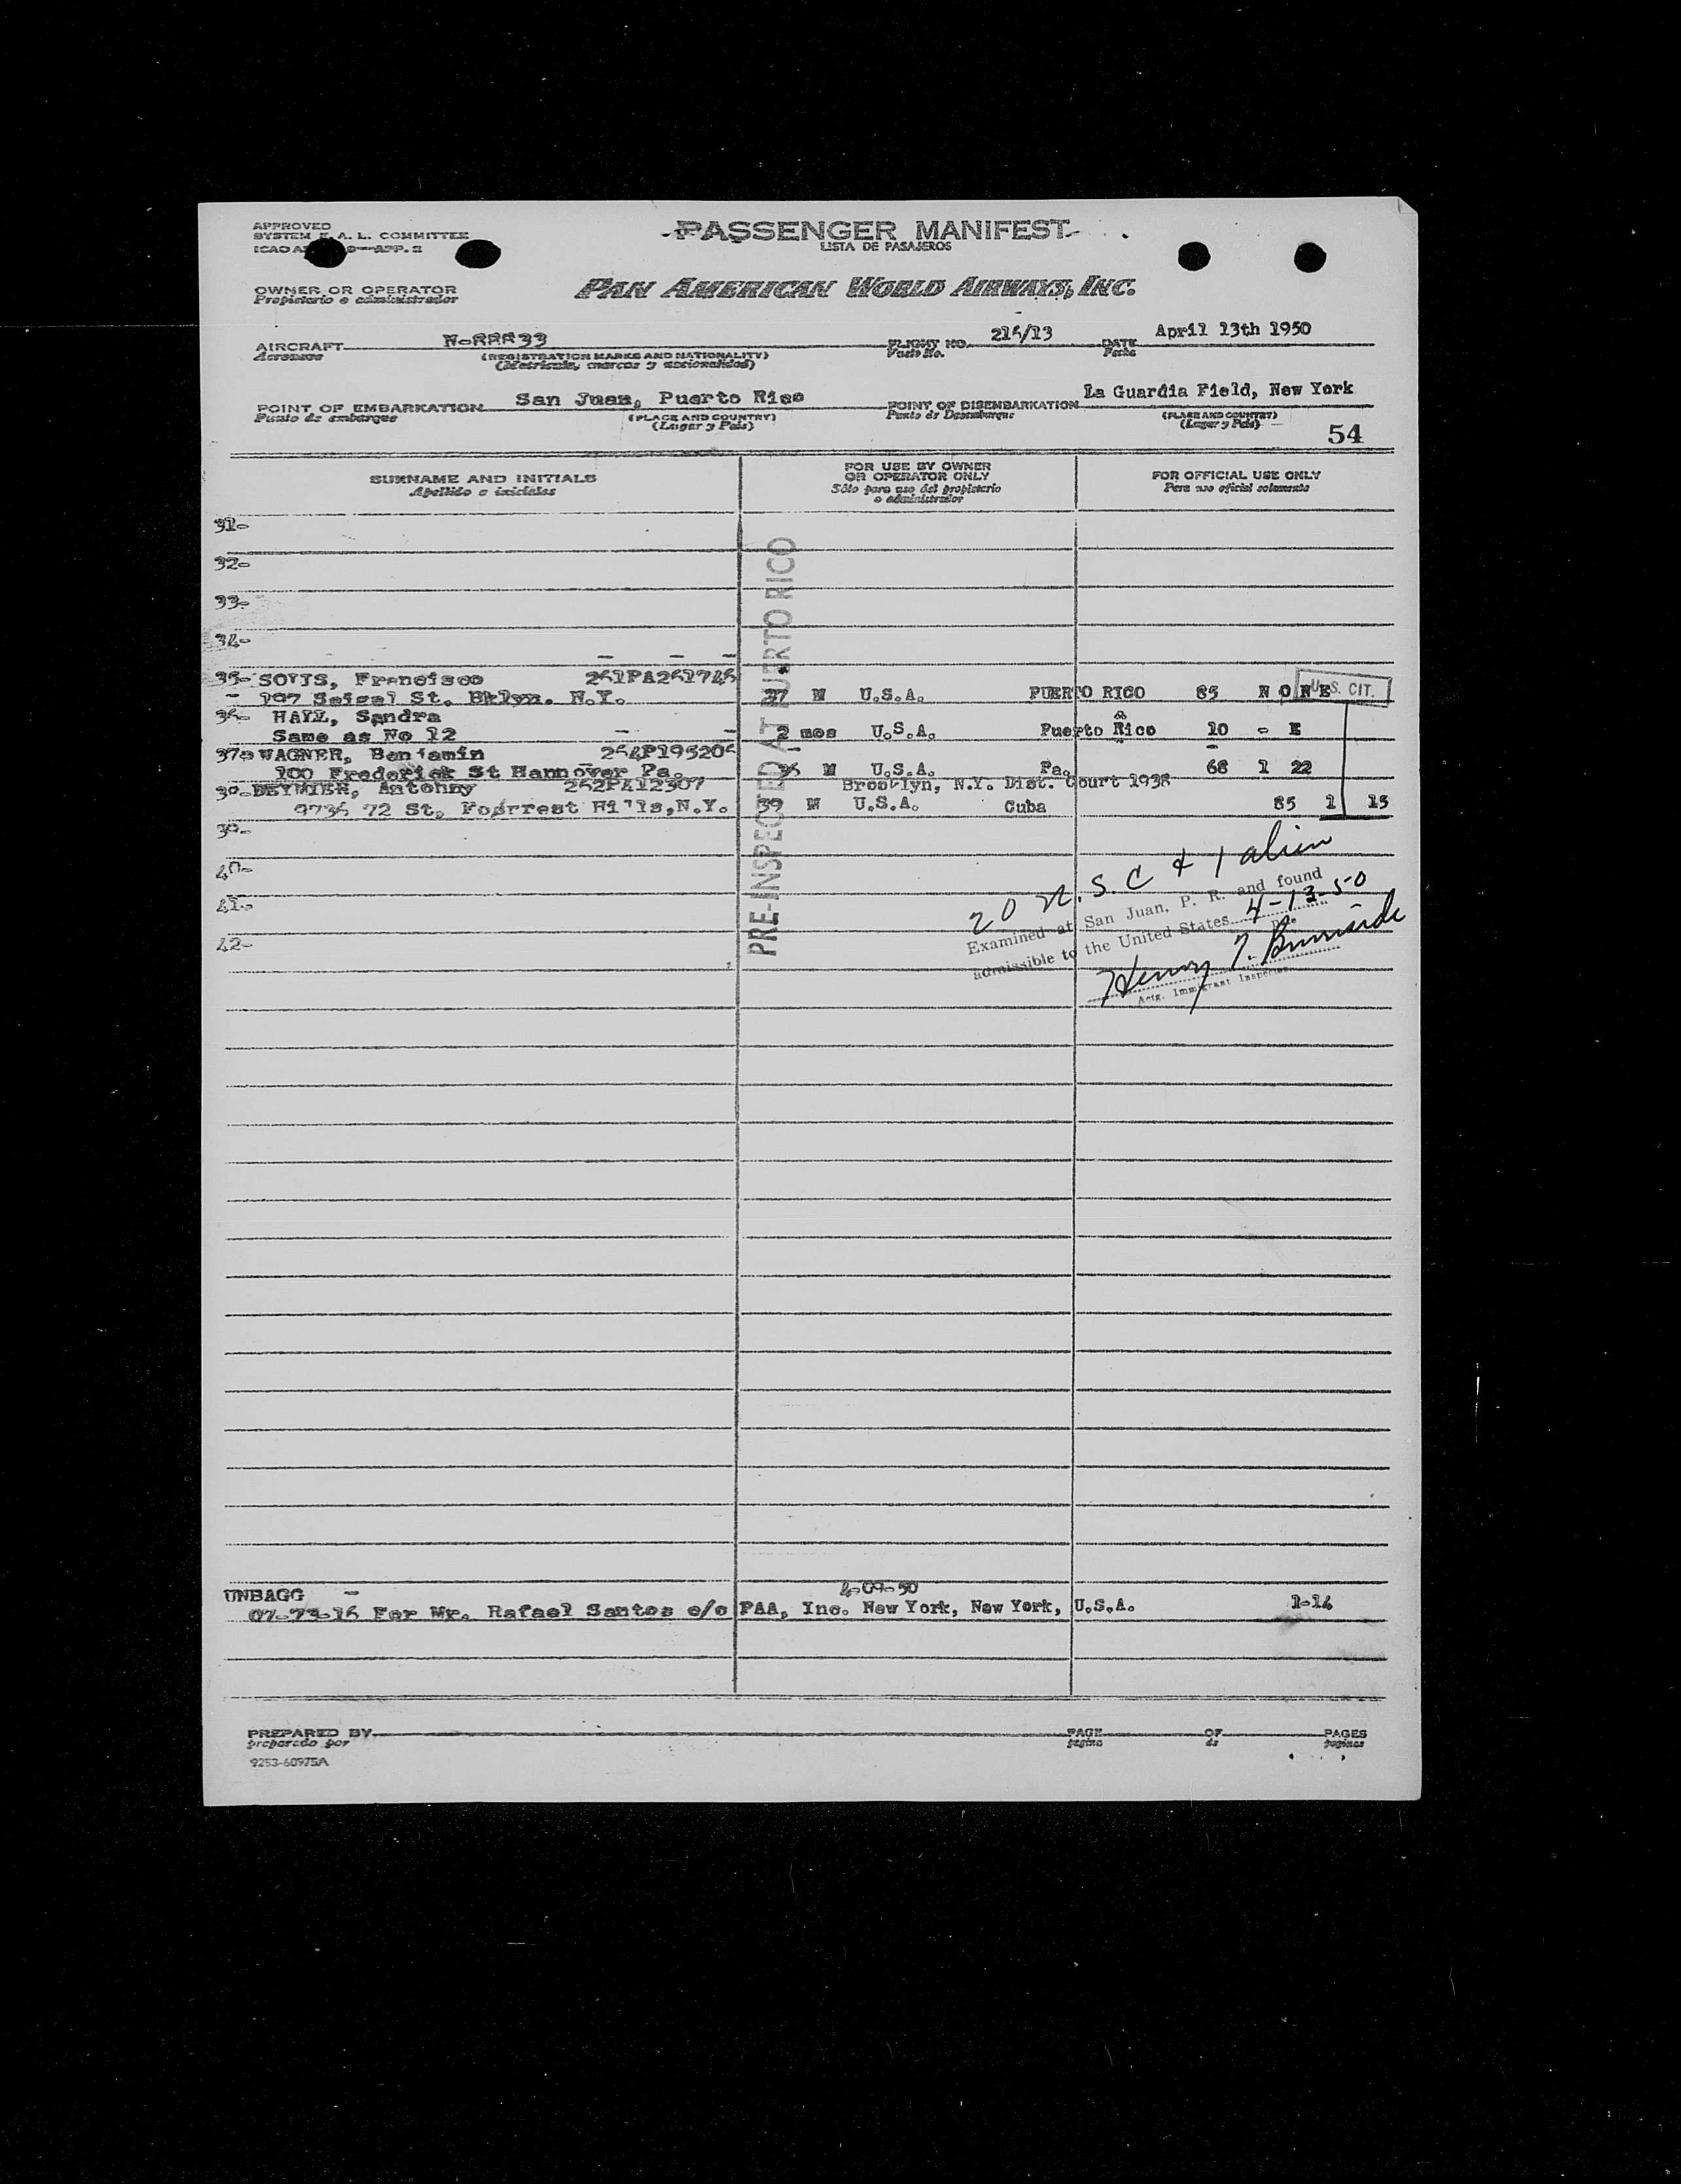 APPROVED
SYSTEM F. A. L. COMMITTEE
ICAO APP. 2
PASSENGER MANIFEST
LISTA DE PASAJEROS
OWNER OR OPERATOR
Propietario o administrador
PAN AMERICAN WORLD AIRWAYS, INC.
AIRCRAFT
Aeronave
(REGISTRATION MARKS AND NATIONALITY)
(Matrícula, marcas y nacionalidad)
FLIGHT NO. 216/13
Vuelo No.
DATE April 13th 1950
Fecha
POINT OF EMBARKATION San Juan, Puerto Rico
Punto de embarque
(PLACE AND COUNTRY)
(Lugar y País)
POINT OF DISEMBARKATION La Guardia Field, New York
Punto de Desembarque
(PLACE AND COUNTRY)
(Lugar y País)
54
SURNAME AND INITIALS
Apellido e iniciales
FOR USE BY OWNER
OR OPERATOR ONLY
Sólo para uso del propietario
o administrador
FOR OFFICIAL USE ONLY
Para uso oficial solamente
31-
32-
33-
34-
35- Francisco 261PA261746
197 Seigel St. Bklyn. N.Y. 27 M U.S.A. PUERTO RICO 85 N O N E U. S. CIT.
36- HALL, Sandra
Same as No 12 - - 2 mos U.S.A. Puerto Rico 10 - E
37- WAGNER, Benjamin 264P195206
100 Frederick St Hannover Pa. M U.S.A. Pa. 68 1 22
Antohny 262PA12307 Brooklyn, N.Y. Dist. Court 1938
9736 72 St, Forrest Hills, N.Y. 39 M U.S.A. Cuba 85 1 15
39-
40-
41-
42-
PRE-INSPECTED AT PUERTO RICO
20 U.S. C & 1 alien
Examined at San Juan, P. R. and found
admissible to the United States 4-13-50
Date
Henry
Actg. Immigrant Inspector
UNBAGG - 4-09-50
For Mr. Rafael Santos c/o PAA, Inc. New York, New York, U.S.A. 1-14
PREPARED BY
preparado por
PAGE
página
OF
de
PAGES
páginas
9253-60975A